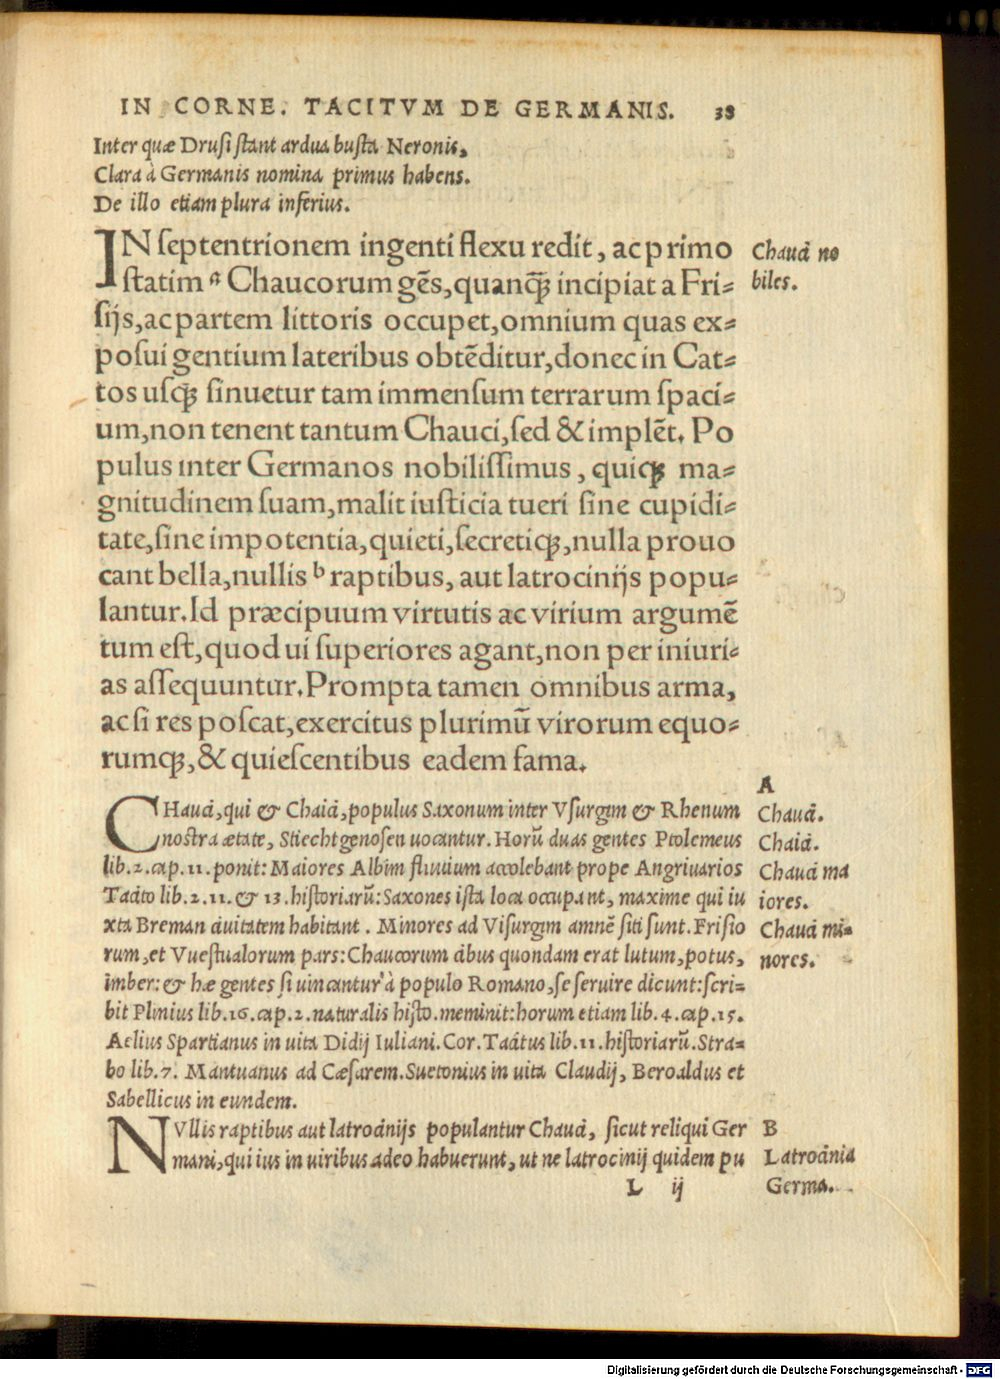 IN CORNE. TACITVM DE GERMANIS. 38
Inter quæ Drusi stant ardua busta Neronis,
Clara à Germanis nomina primus habens.
De illo etiam plura inferius.
IN ſeptentrionem ingenti flexu redit, ac primo
ſtatim a Chaucorum gẽs, quanqꝫ incipiat a Fri⸗
ſijs, ac partem littoris occupet, omnium quas ex⸗
poſui gentium lateribus obtẽditur, donec in Cat⸗
tos uſqꝫ ſinuetur tam immenſum terrarum ſpaci⸗
um, non tenent tantum Chauci, ſed & implẽt. Po
pulus inter Germanos nobiliſſimus, quiqꝫ ma⸗
gnitudinem ſuam, malit iuſticia tueri ſine cupidi⸗
tate, ſine impotentia, quieti, ſecretiqꝫ, nulla prouo
cant bella, nullis b raptibus, aut latrocinijs popu⸗
lantur. Id præcipuum virtutis ac virium argumẽ
tum eſt, quod ui ſuperiores agant, non per iniuri⸗
as aſſequuntur. Prompta tamen omnibus arma,
ac ſi res poſcat, exercitus plurimũ virorum equo⸗
rumqꝫ, & quieſcentibus eadem fama.
Chauci no
biles.
CHauci, qui & Chaici, populus Saxonum inter Vſurgim & Rhenum
noſtra ætate, Stiechtgenoſen uocantur. Horũ duas gentes Ptolemeus
lib.2.cap.11. ponit: Maiores Albim fluuium accolebant prope Angriuarios
Tacito lib.2.11.& 13.hiſtoriarũ: Saxones iſta loca occupant, maxime qui iu
xta Breman ciuitatem habitant. Minores ad Viſurgim amnẽ ſiti ſunt. Friſio
rum, et Vueſtualorum pars: Chaucorum cibus quondam erat lutum, potus,
imber: & hæ gentes ſi uincantur à populo Romano, ſe ſeruire dicunt: ſcri⸗
bit Plinius lib.16.cap.2.naturalis hiſto. meminit: horum etiam lib.4.cap.15.
Aelius Spartianus in uita Didij Iuliani. Cor. Tacitus lib.11.hiſtoriarũ. Stra⸗
bo lib.7. Mantuanus ad Cæſarem. Suetonius in uita Claudij, Beroaldus et
Sabellicus in eundem.
A
Chauci.
Chaici.
Chauci ma
iores.
Chauci mi⸗
nores.
NVllis raptibus aut latrocinijs populantur Chauci, ſicut reliqui Ger
mani, qui ius in uiribus adeo habuerunt, ut ne latrocinij quidem pu
B
Latrocinia
Germa.
L ij
Digitalisierung gefördert durch die Deutsche Forschungsgemeinschaft - DFG